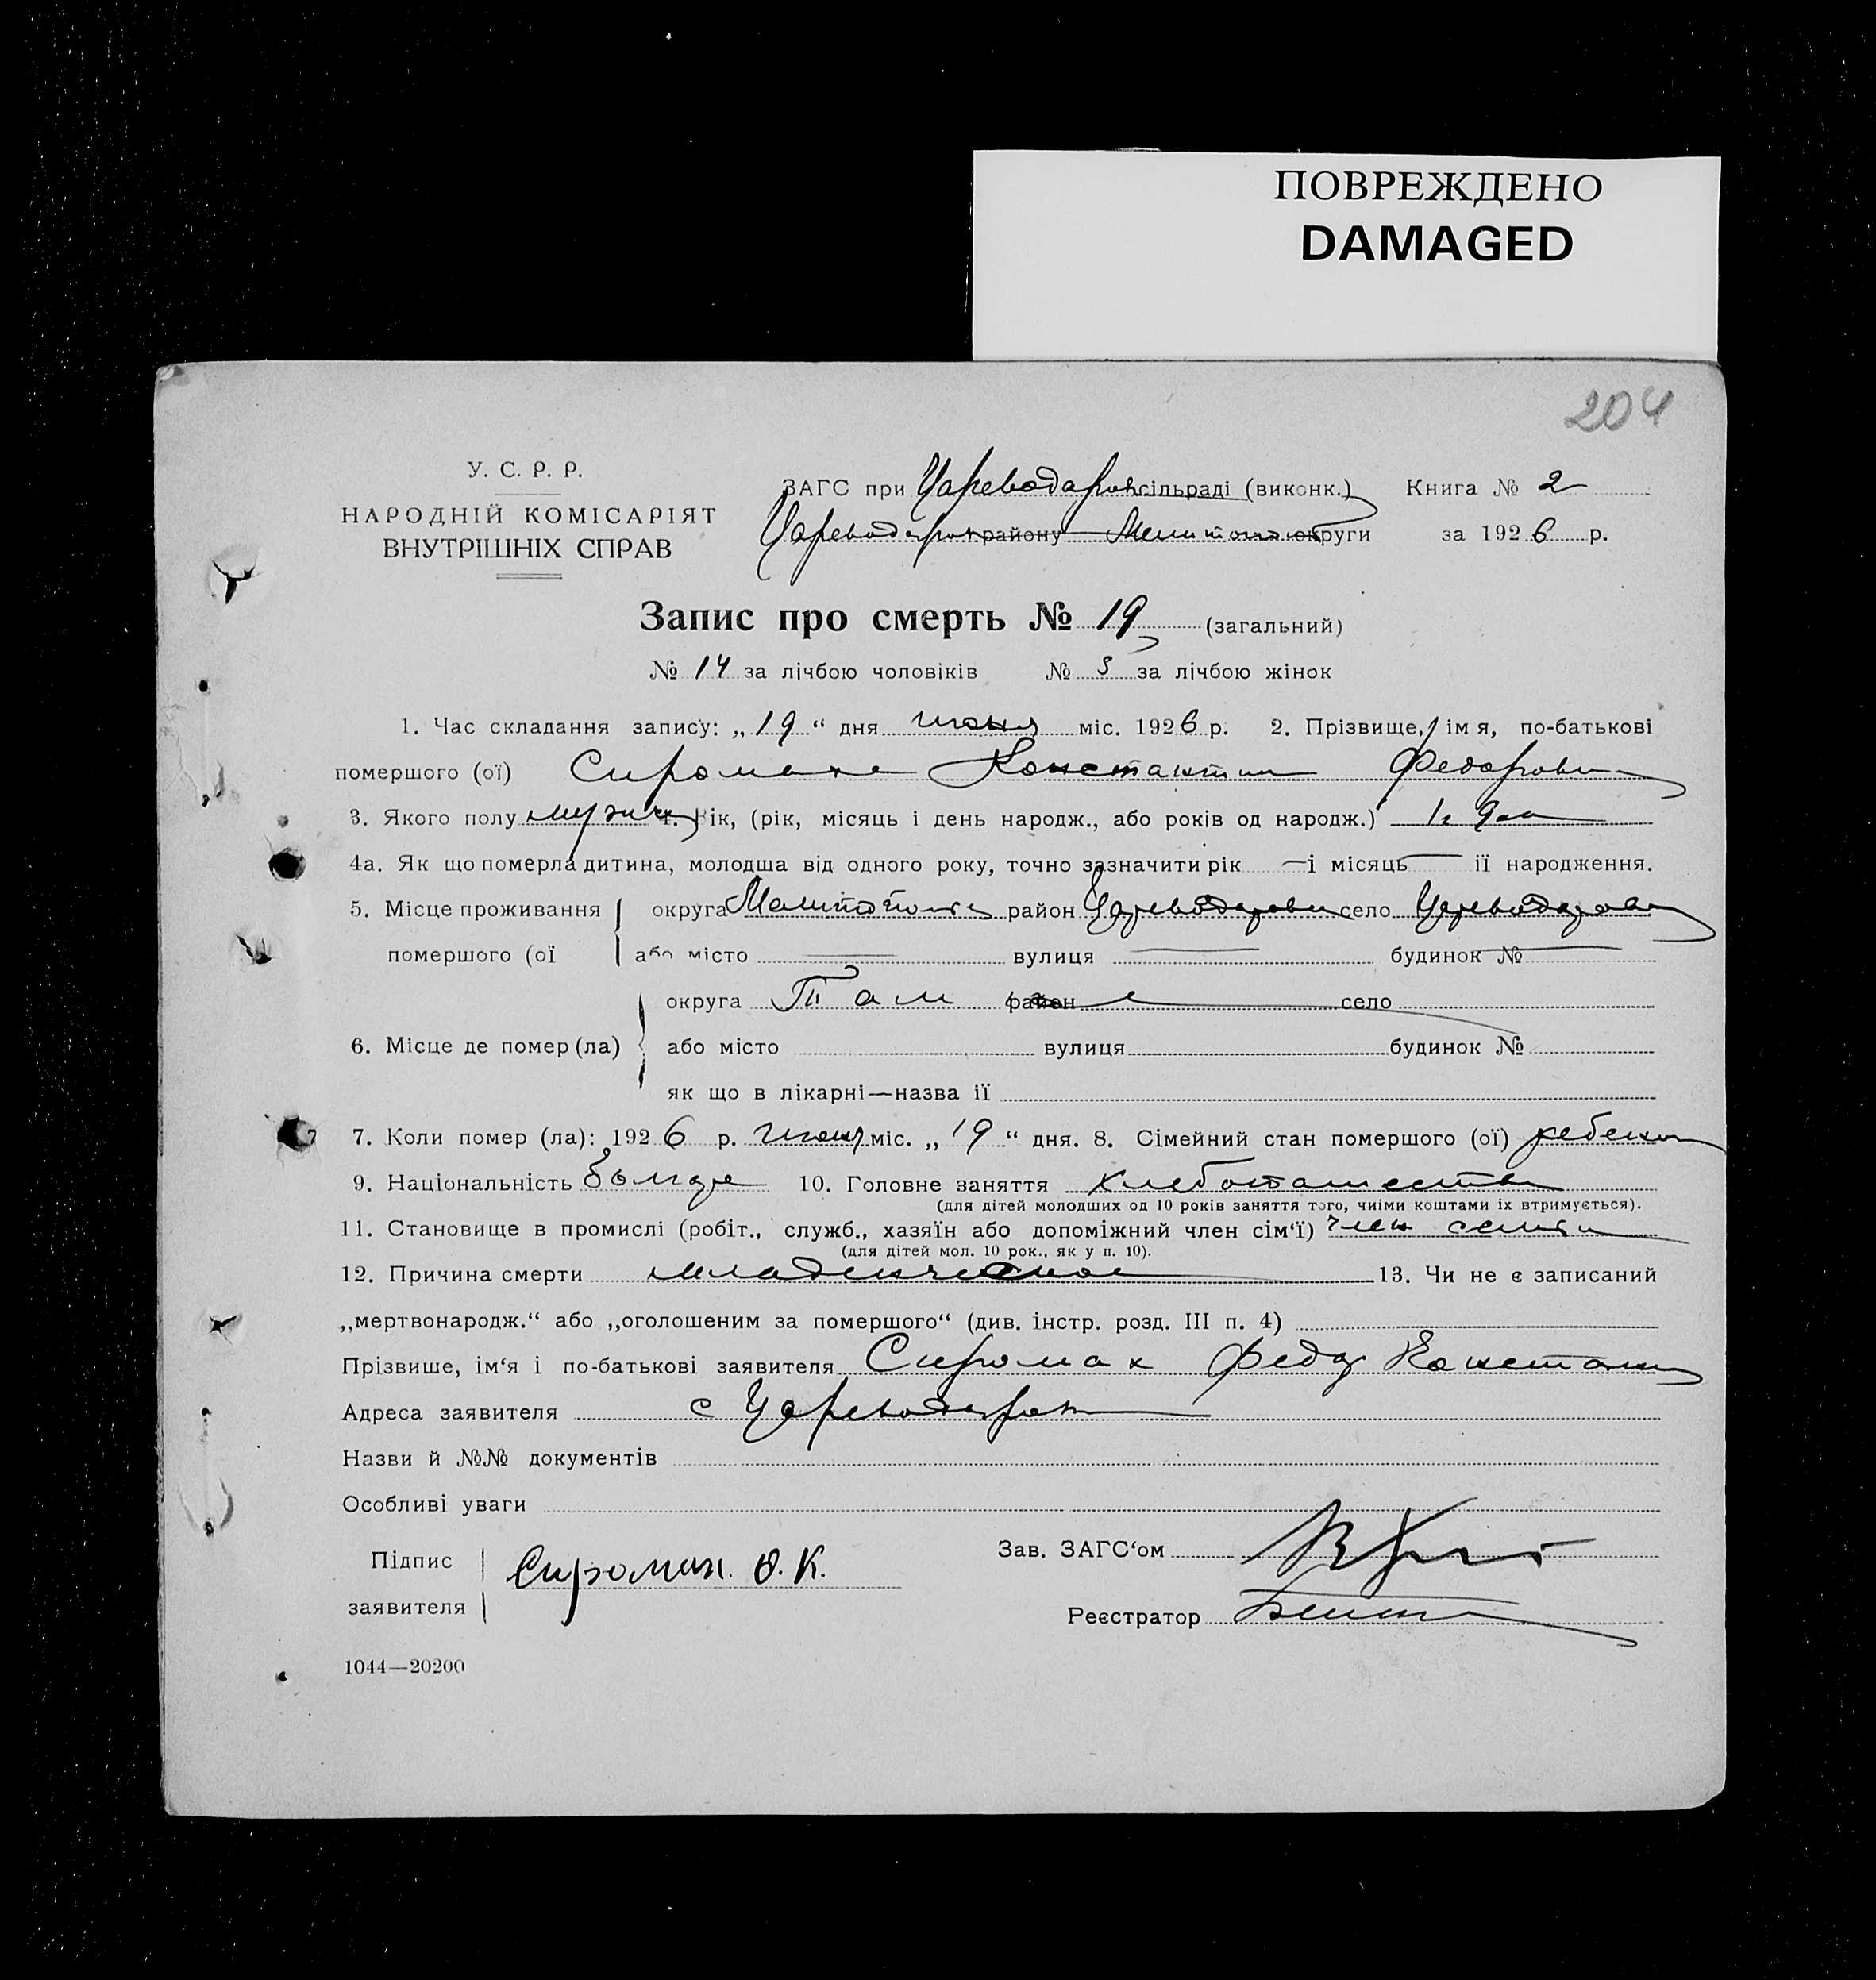 ПОВРЕЖДЕНО
DAMAGED
204
У. С. Р. Р.
НАРОДНІЙ КОМІСАРІЯТ
ВНУТРІШНІХ СПРАВ
ЗАГС при Цареводаров сільраді (виконк.) Книга № 2
Цареводаров району округи за 1926 р.
Запис про смерть № 19 (загальний)
№ 14 за лічбою чоловіків № 5 за лічбою жінок
1. Час складання запису: „19“ дня июня міс. 1926 р. 2. Прізвище, ім я, по-батькові
помершого (ої) Сиромаха Константин Федорович
3. Якого полу мужич 4. Вік, (рік, місяць і день народж., або років од народж.)
4а. Як що померла дитина, молодша від одного року, точно зазначити рік — і місяць — ії народження.
5. Місце проживання округа Мелитополь район Цареводаров село Цареводаров
помершого (ої або місто вулиця будинок №
округа Там район село
6. Місце де помер (ла) або місто вулиця будинок №
як що в лікарні—назва ії
7. Коли помер (ла): 1926 р. июня міс. „19“ дня. 8. Сімейний стан помершого (ої) ребенок
9. Національність болгар 10. Головне заняття хлебопашество
(для дітей молодших од 10 років заняття того, чиїми коштами їх втримується).
11. Становище в промислі (робіт., служб., хазяїн або допоміжний член сім‘ї) член семьи
(для дітей мол. 10 рок., як у п. 10).
12. Причина смерти младенческое 13. Чи не є записаний
„мертвонародж.“ або „оголошеним за помершого“ (див. інстр. розд. III п. 4)
Прізвише, ім‘я і по-батькові заявителя Сиромах Федор Констант
Адреса заявителя с Цареводаров
Назви й №№ документів
Особливі уваги
Підпис
заявителя Сиромах. Ф. К.
Зав. ЗАГС‘ом
Реєстратор
1044—20200